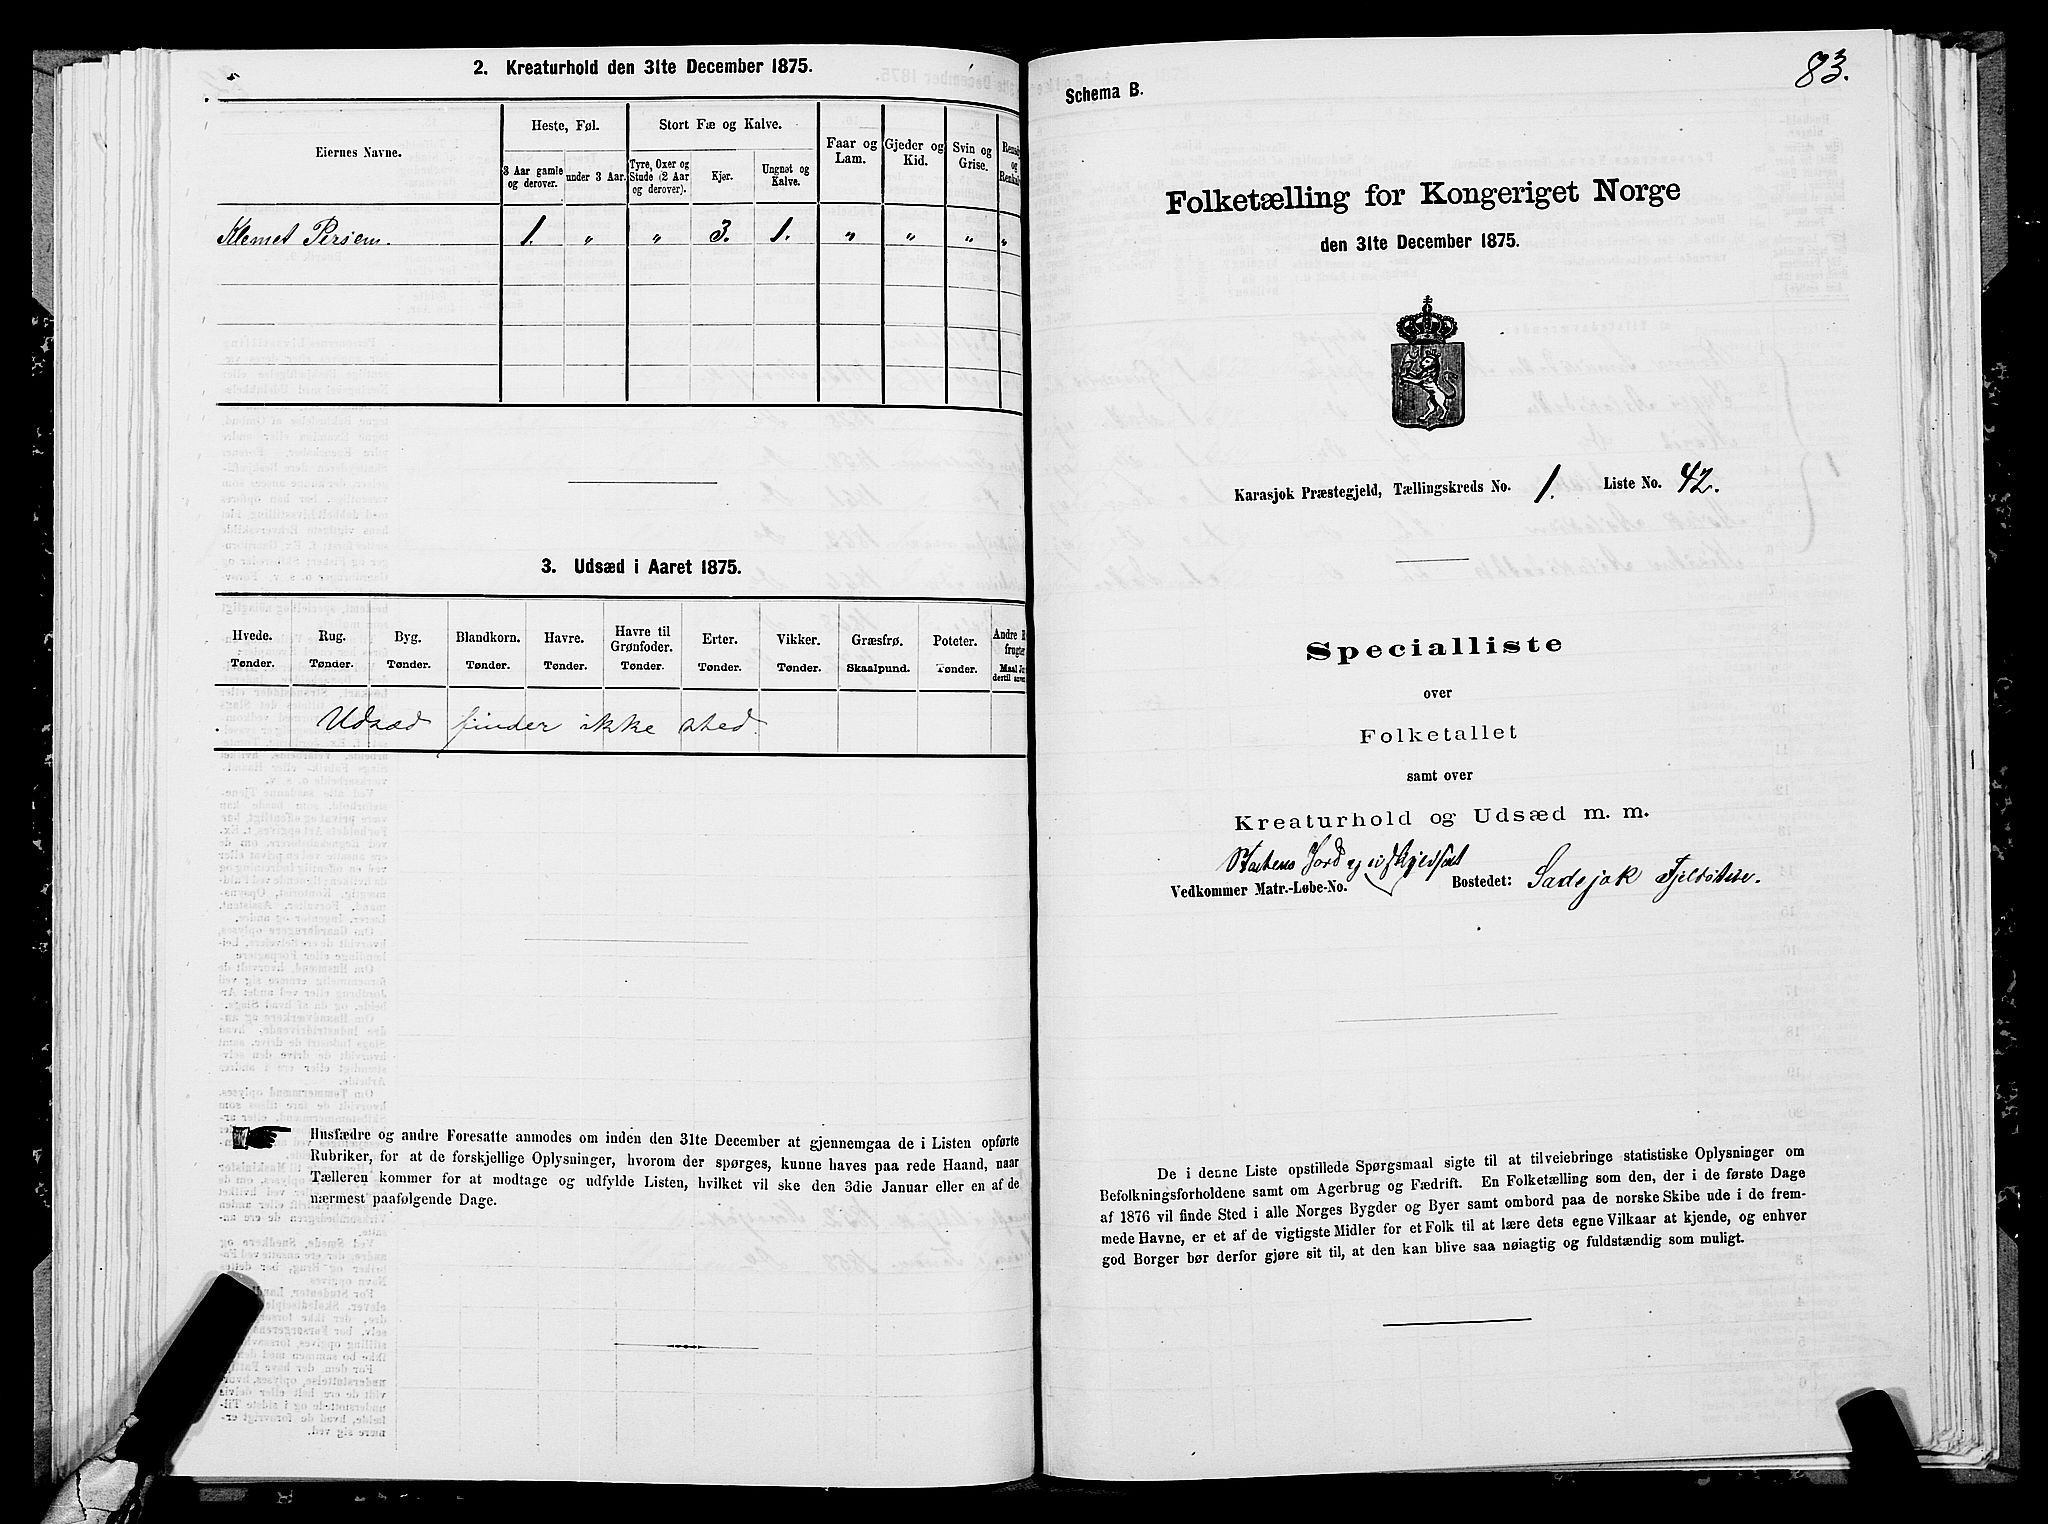 2. Kreaturhold den 31te December 1875.
Eiernes Navne.
Heste, Føl.
Stort Fæ og Kalve.
Faar og Lam.
Gjeder og Kid.
Svin og Grise.
3 Aar gamle og derover.
under 3 Aar.
Tyre, Oxer og Stude (2 Aar og derover).
Kjør.
Ungnøt og Kalve.
Klemet Persen. 1. " " 3. 1. " " " "
3. Udsæd i Aaret 1875.
Hvede. Rug. Byg. Blandkorn. Havre. Havre til Grønfoder. Erter. Vikker. Græsfrø. Poteter.
Tønder. Tønder. Tønder. Tønder. Tønder. Tønder. Tønder. Tønder. Skaalpund. Tønder.
Udsæd finder ikke sted.
Husfædre og andre Foresatte anmodes om inden den 31te December at gjennemgaa de i Listen opførte
Rubriker, for at de forskjellige Oplysninger, hvorom der spørges, kunne haves paa rede Haand, naar
Tælleren kommer for at modtage og udfylde Listen, hvilket vil ske den 3die Januar eller en af de
nærmest paafølgende Dage.
83.
Schema B.
Folketælling for Kongeriget Norge
den 31te December 1875.
Karasjok Præstegjeld, Tællingskreds No. 1. Liste No. 42.
Specialliste
over
Folketallet
samt over
Kreaturhold og Udsæd m. m.
Statens Jord
Vedkommer Matr.-Løbe-No. Bostedet: Sadejok Fjeldstue.
De i denne Liste opstillede Spørgsmaal sigte til at tilveiebringe statistiske Oplysninger om
Befolkningsforholdene samt om Agerbrug og Fædrift. En Folketælling som den, der i de første Dage
af 1876 vil finde Sted i alle Norges Bygder og Byer samt ombord paa de norske Skibe ude i de frem-
mede Havne, er et af de vigtigste Midler for et Folk til at lære dets egne Vilkaar at kjende, og enhver
god Borger bør derfor gjøre sit til, at den kan blive saa nøiagtig og fuldstændig som muligt.